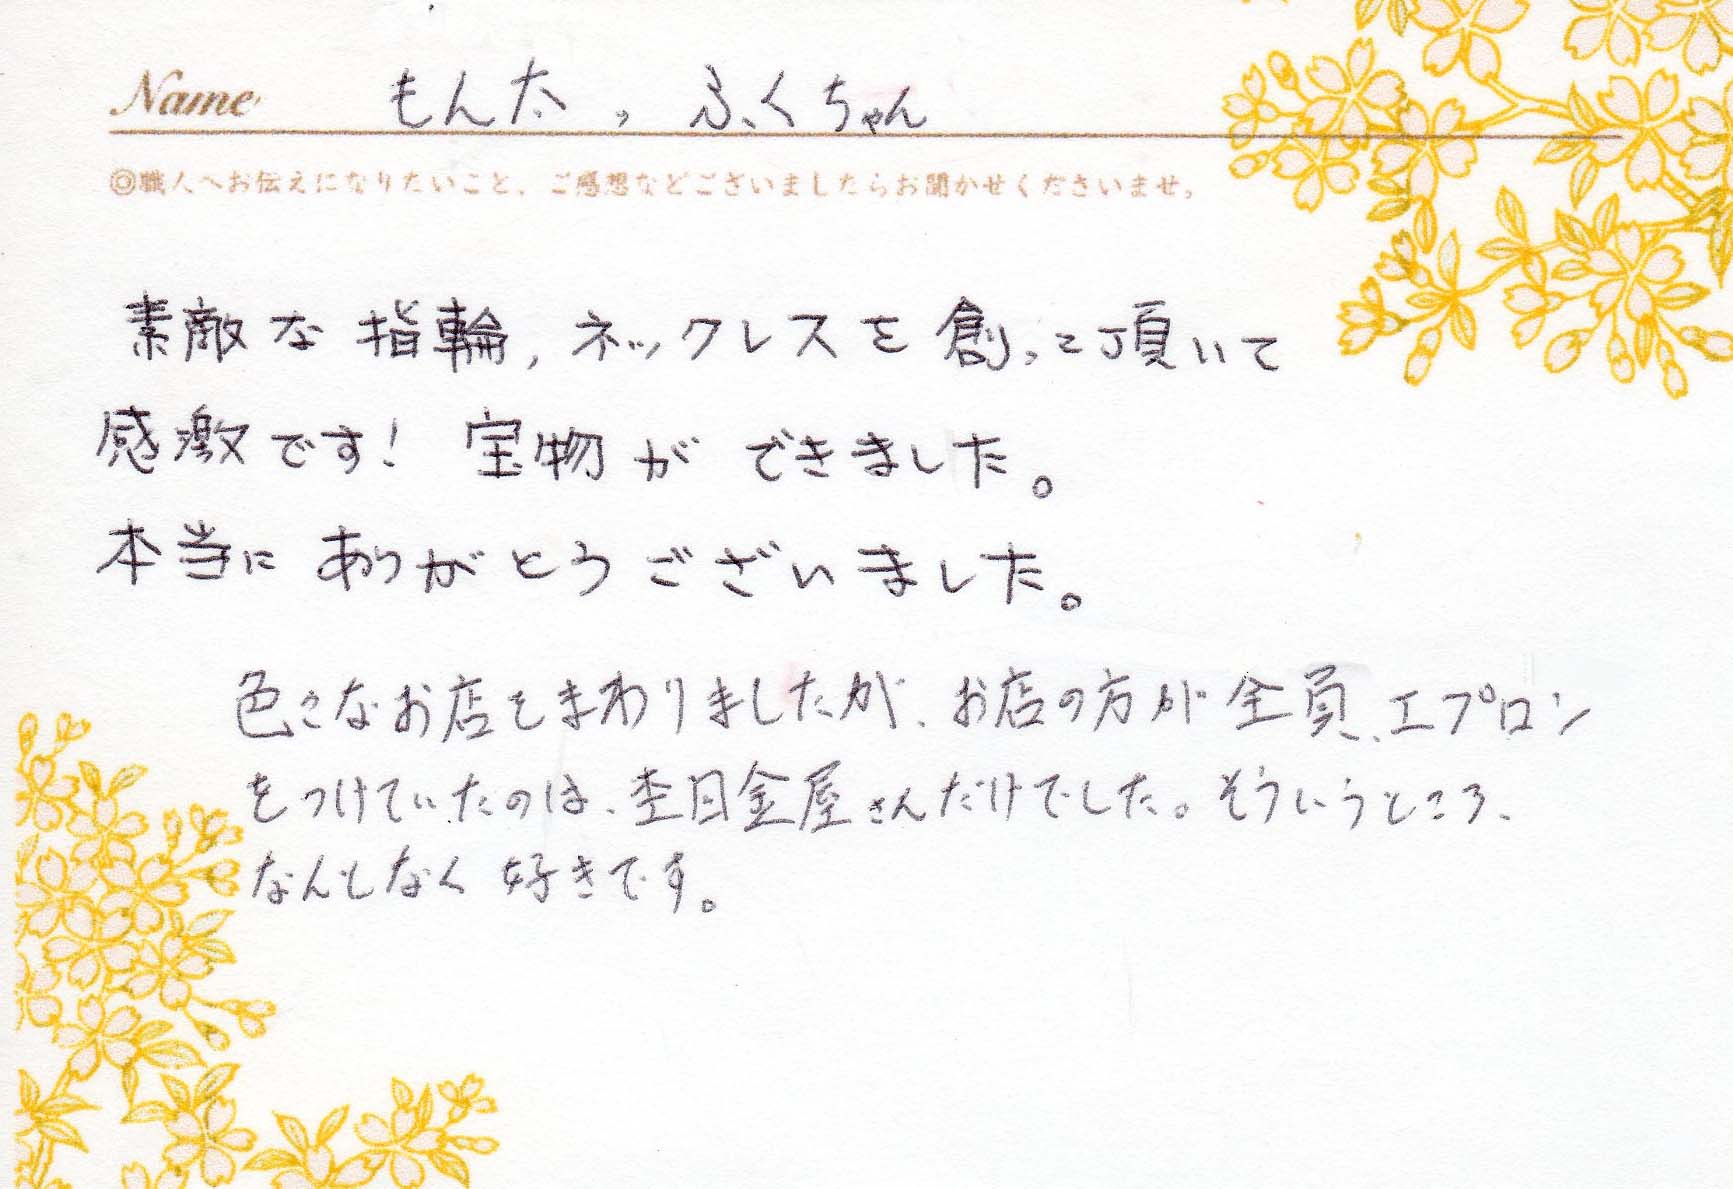 Name もん太 、 ふくちゃん
◎職人へお伝えになりたいこと、ご感想などございましたらお聞かせくださいませ。
素敵な指輪、ネックレスを創って頂いて
感激です! 宝物ができました。
本当にありがとうございました。
色々なお店をまわりましたが、お店の方が全員、エプロン
をつけていたのは、杢目金屋さんだけでした。そういうところ、
なんとなく好きです。